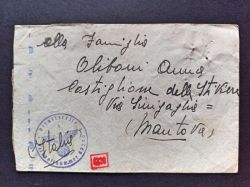 alla Famiglia
Oliboni Anna
Castiglione delle Stiviere
Via Sinigaglia =
(Mantova)
(Italia)